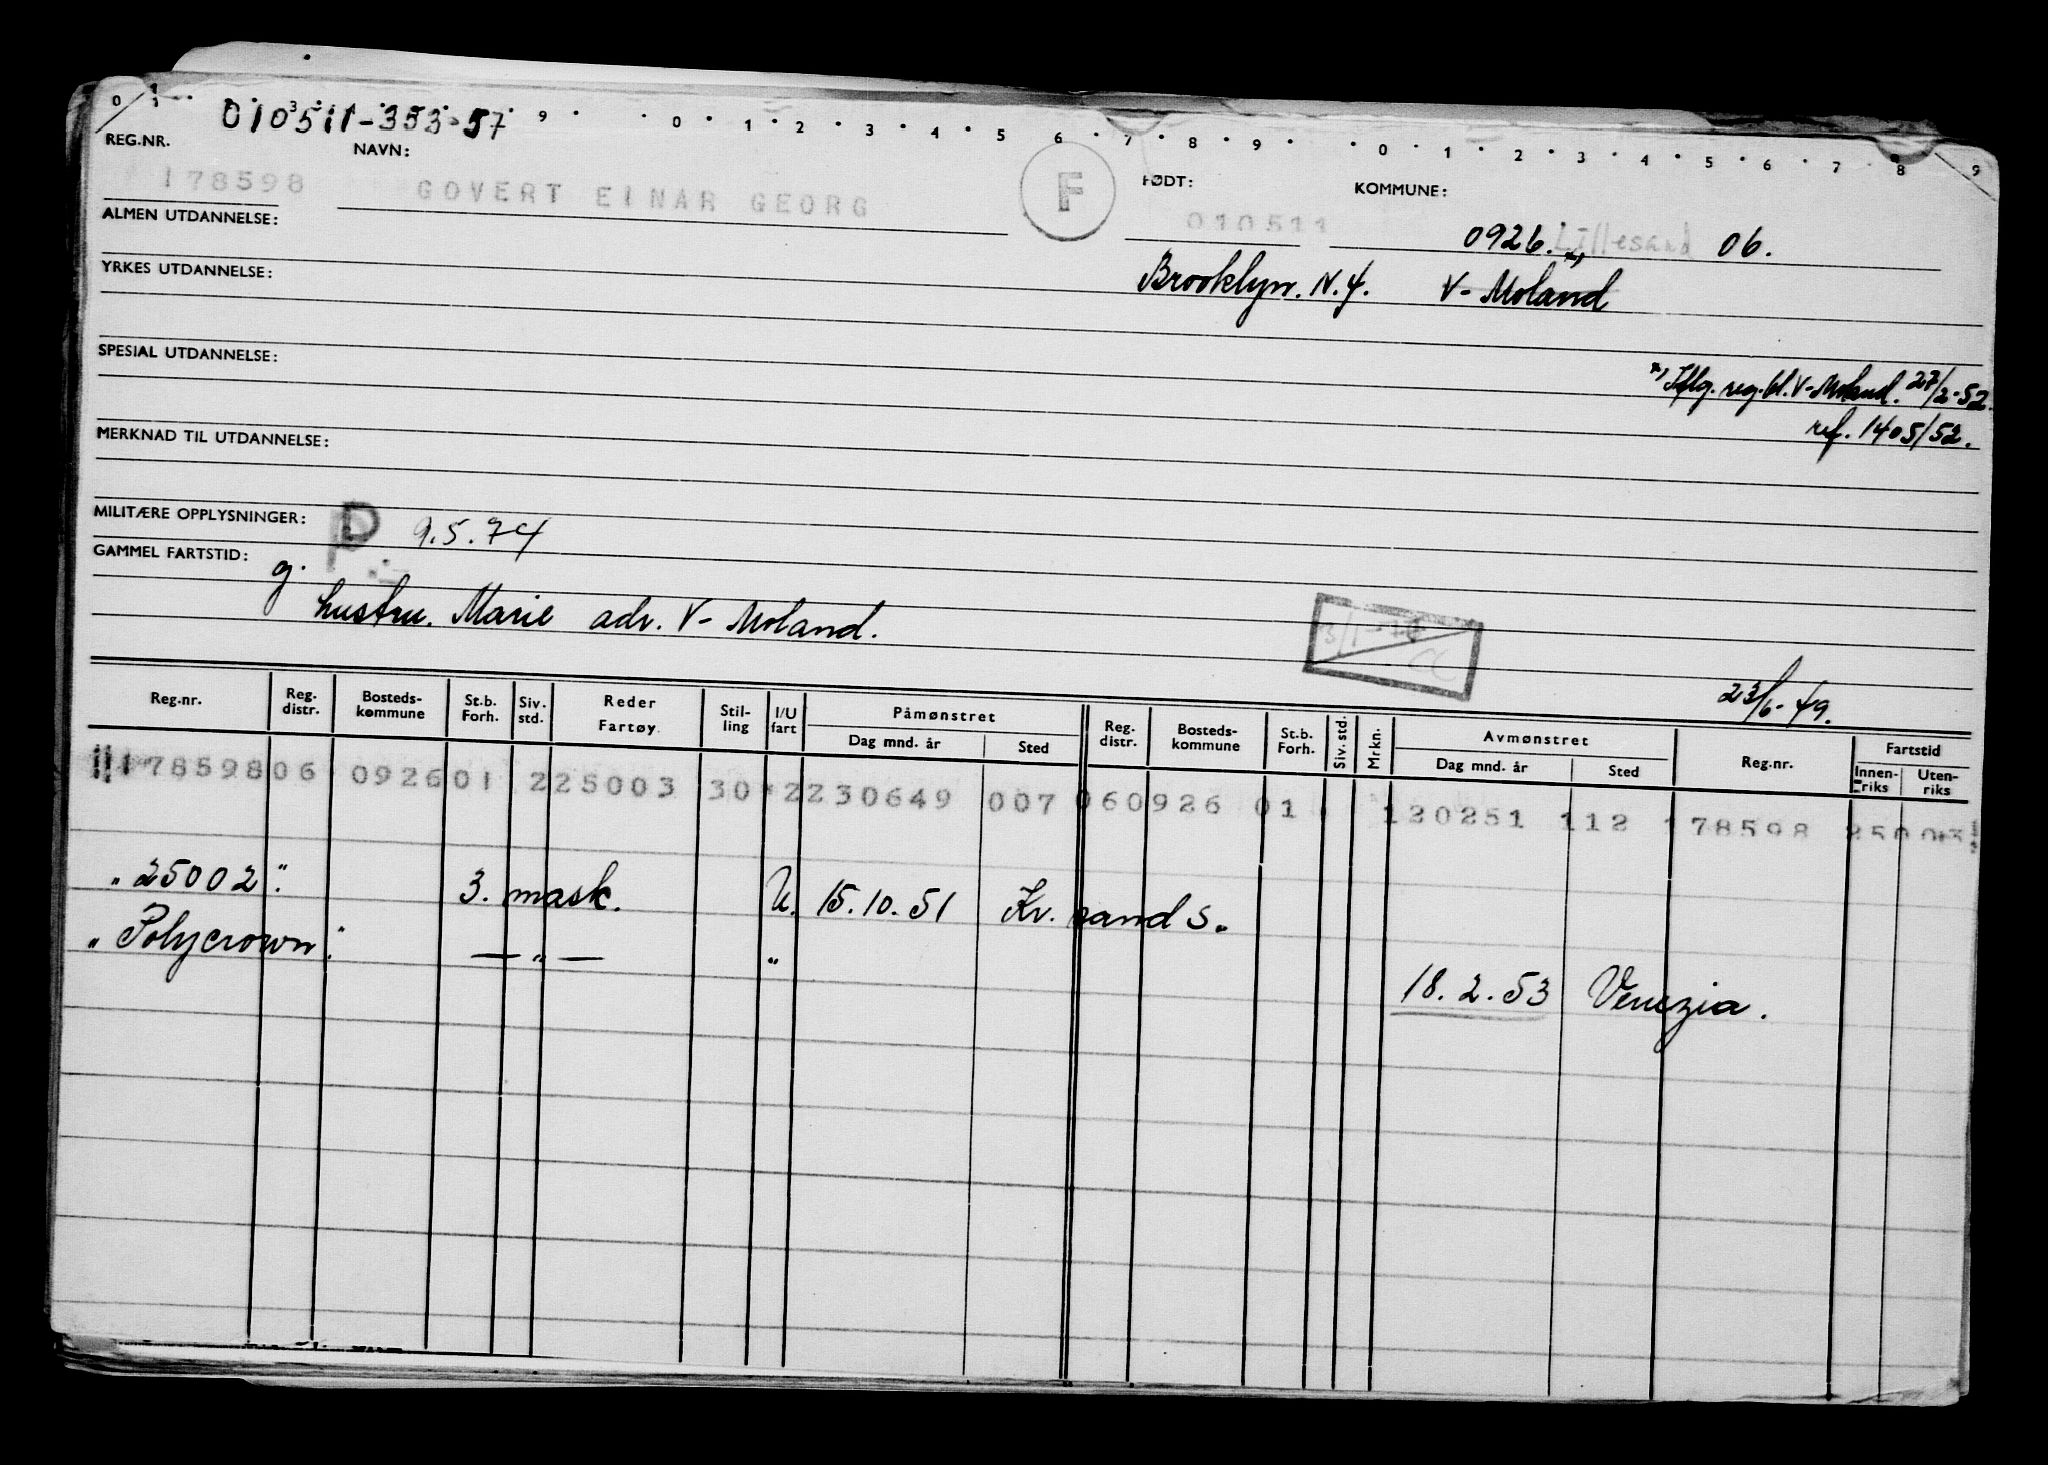 0 1 3 9 0 1 2 3 4 5 6 7 8 9 0 1 2 3 4 5 6 7 8 9
010511-353-57
REG.NR. NAVN: FØDT: KOMMUNE:
178598 GOVERT EINAR GEORG F 010511 0926. Lillesand 06.
ALMEN UTDANNELSE:
Brooklyn. N.Y. V-Moland
YRKES UTDANNELSE:
SPESIAL UTDANNELSE:
x) Iflg. reg.bl. V-Moland. 27/2-52.
ref. 1405/52.
MERKNAD TIL UTDANNELSE:
MILITÆRE OPPLYSNINGER: P 9.5.74
GAMMEL FARTSTID: g.
hustru. Marie adr. V-Moland.
23/6-49.
Reg.nr. Reg. distr. Bosteds-kommune St.b. Forh. Siv. std. Reder Fartøy Stil-ling I/U fart Påmønstret Dag mnd. år Sted Reg. distr. Bosteds-kommune St.b. Forh. Siv. std. Mrkn. Avmønstret Dag mnd. år Sted Reg.nr. Fartstid Innen-riks Uten-riks
178598 06 0926 01 225003 30 2 230649 007 060926 01 120251 112 178598 25003
"25002". 3. mask. U. 15.10.51 Kr. sand S.
"Polycrown". — " — " 18.2.53 Venezia.